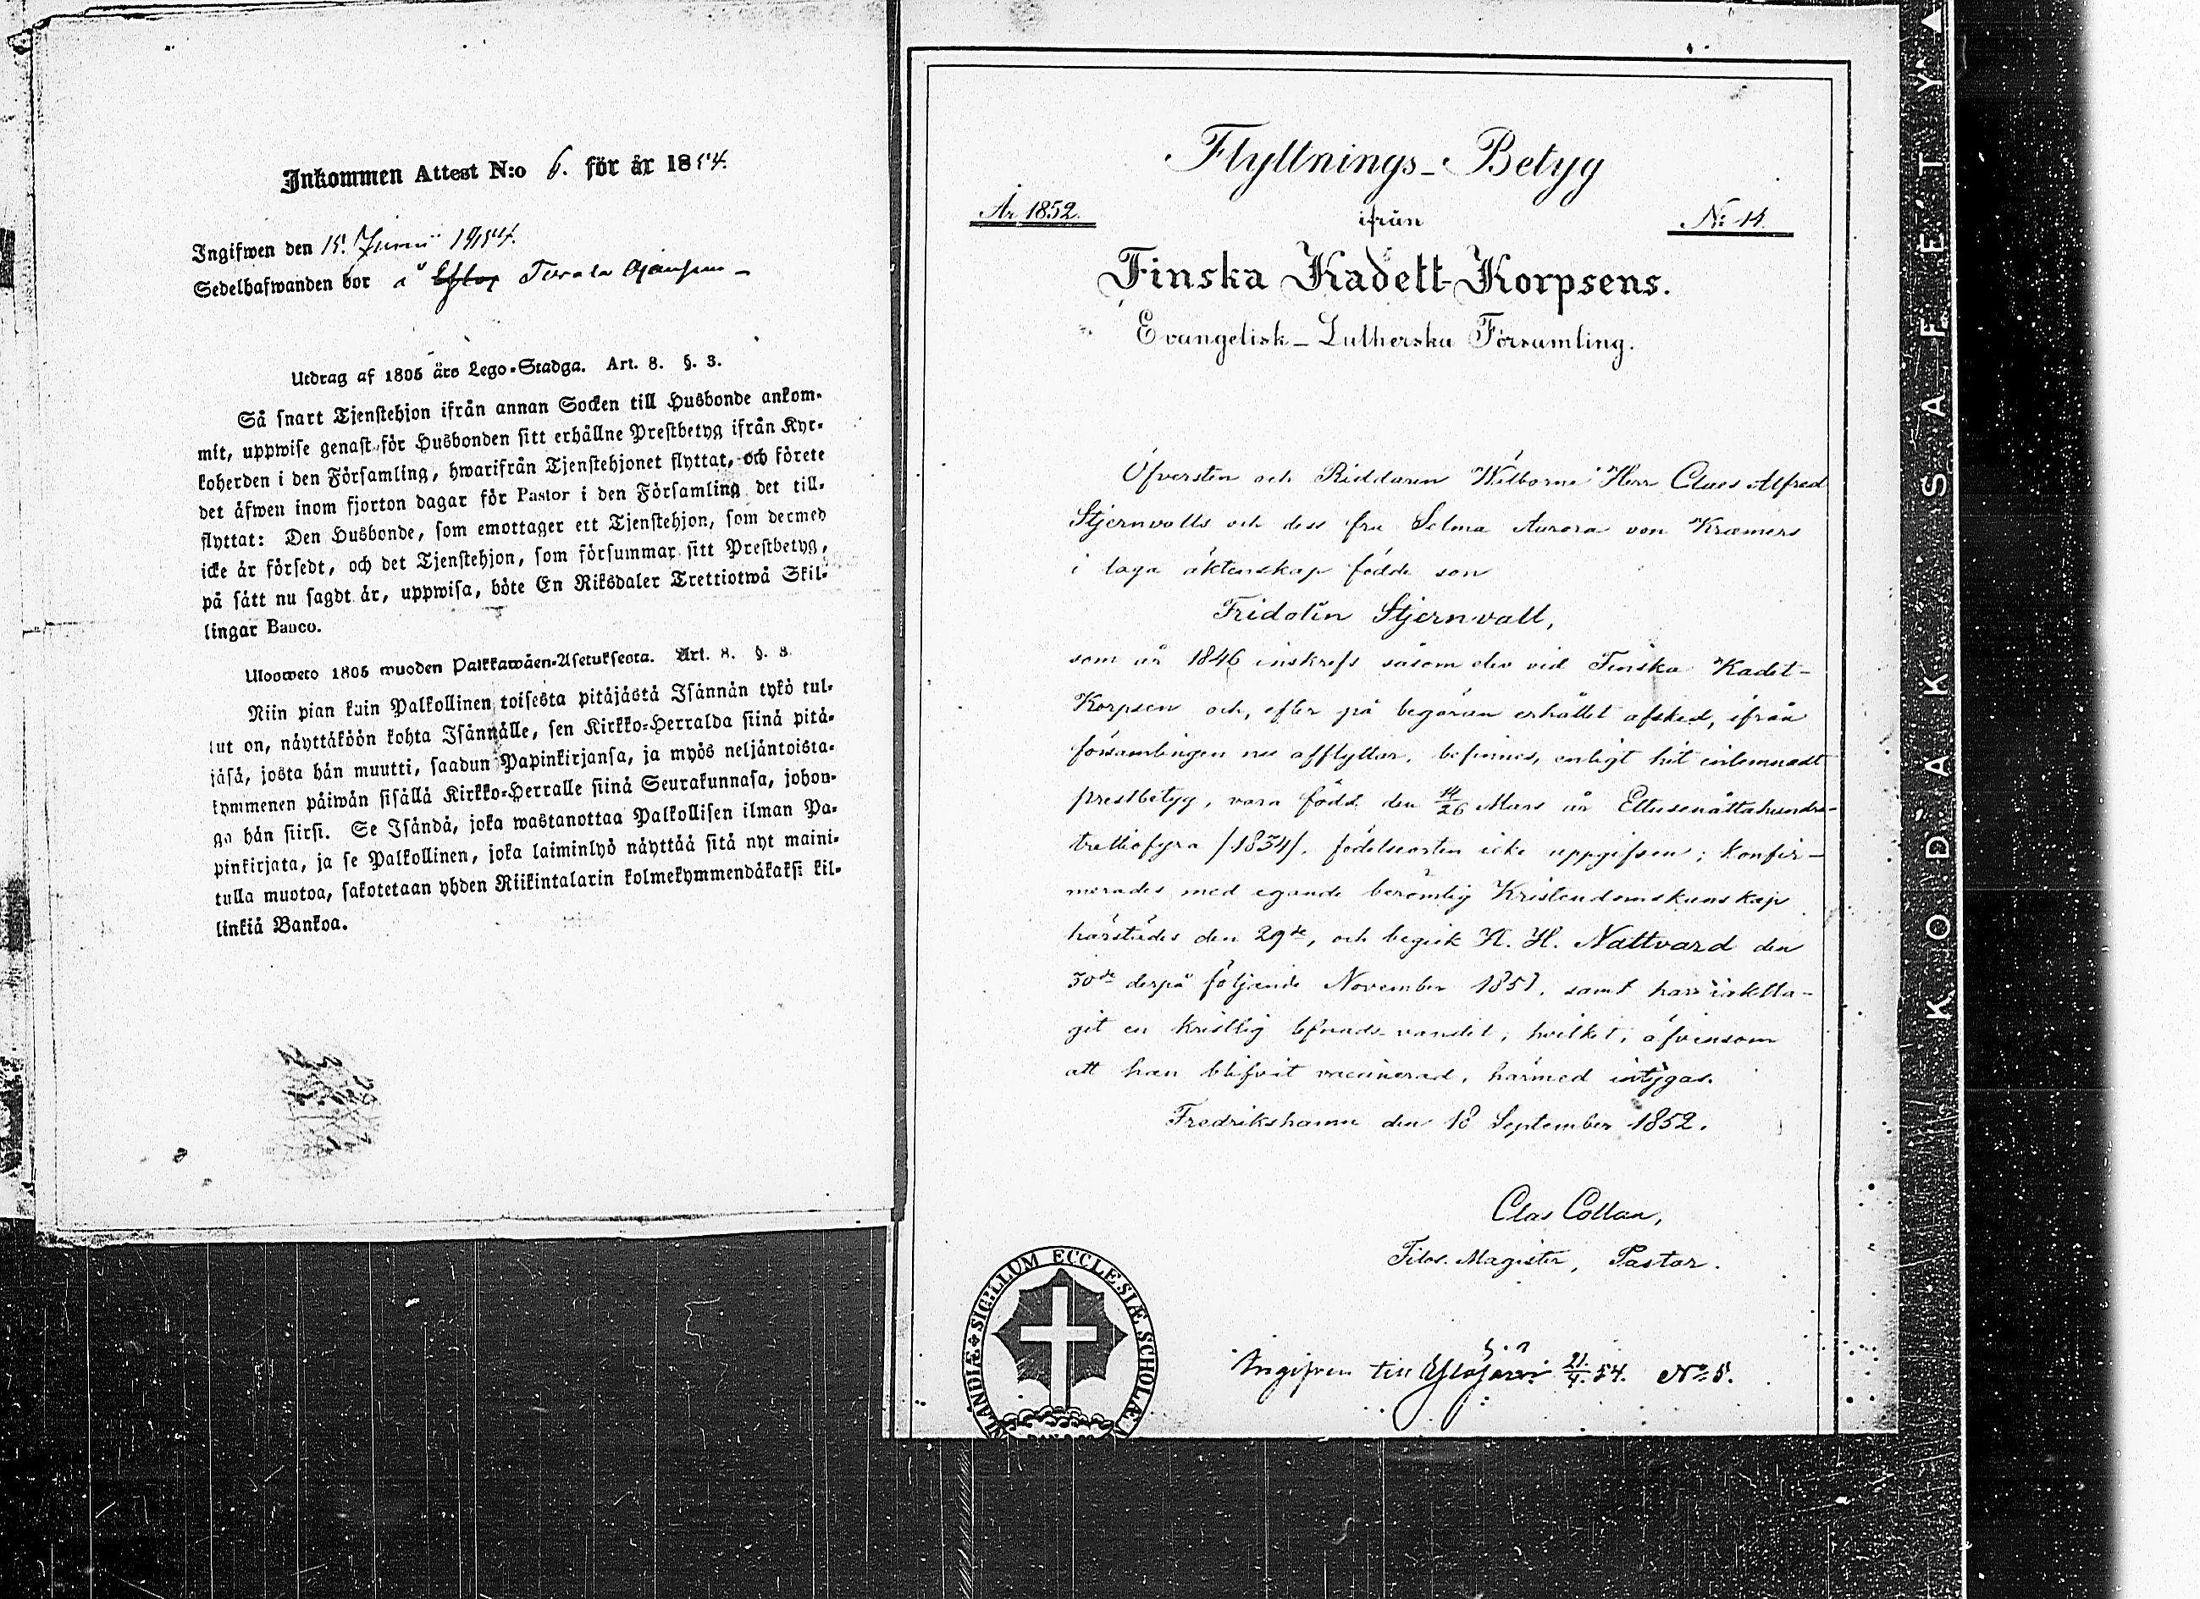 Inkommen Attest N:o 6. för år 1854.
Ingifwen den 15. Junii 1854.
Sedelhafwanden bor i
Utdrag af 1805 års Lego-Stadga. Art. 8. §. 3.
Så snart Tjenstehjon ifrån annan Socken till Husbonde ankom-
mit, uppwise genast för Husbonden sitt erhållne Prestbetyg ifrån Kyr-
koherden i den Församling, hwarifrån Tjenstehjonet flyttat, och förete
det äfwen inom fjorton dagar för Pastor i den Församling det till-
flyttat: Den Husbonde, som emottager ett Tjenstehjon, som dermed
icke är försedt, och det Tjenstehjon, som försummar sitt Prestbetyg,
på sätt nu sagdt är, uppwisa, böte En Riksdaler Trettiotwå Skil-
lingar Banco.
Uloosweto 1805 wuoden Palkkawäen-Asetuksesta. Art. 8. §. 3.
Niin pian kuin Palkollinen toisesta pitäjästä Isännän tykö tul-
lut on, näyttäköön kohta Isännälle, sen Kirkko-Herralda siinä pitä-
jäsä, josta hän muutti, saadun Papinkirjansa, ja myös neljäntoista-
kymmenen päiwän sisällä Kirkko-Herralle siinä Seurakunnasa, johon-
ga hän siirsi. Se Isändä, joka wastanottaa Palkollisen ilman Pa-
pinkirjata, ja se Palkollinen, joka laiminlyö näyttää sitä nyt maini-
tulla muotoa, sakotetaan yhden Riikintalarin kolmekymmendäkaksi kil-
linkiä Bankoa.
Flyttnings-Betyg
År 1852.
ifrån
No 11.
Finska Kadett-Korpsens.
Evangelisk-Lutherska Församling.
Öfversten och Riddaren Wälborne Herr Claes Alfred
Stjernvalls och dess fru Selma Aurora von Kræmers
i laga äktenskap födde son
Fridolin Stjernvall,
som år 1846 inskrefs såsom elev vid Finska Kadet-
Korpsen och, efter på begäran erhållet afsked, ifrån
församlingen nu afflyttar, befinnes, enligt hit inlemnadt
prestbetyg, vara född den 14/26 Mars år Ettusenåttahundra-
trettiofyra /1834/, födelseorten icke uppgifven; konfir-
merades med egande berömlig Kristendomskunskap
härstädes den 29de, och begick H. H. Nattvard den
30de derpå följande November 1851, samt har iaktta-
git en kristlig lefnads-vandel, hvilket, äfvensom
att han blifvit vaccinerad, härmed intygas.
Fredrikshamn den 18 September 1852.
Clas Collan,
Filos. Magister, Pastor.
Ingifven till 21/4. 54. No 5.
SIGILLUM ECCLESIÆ SCHOLÆ
KODAK SAFETY ▲